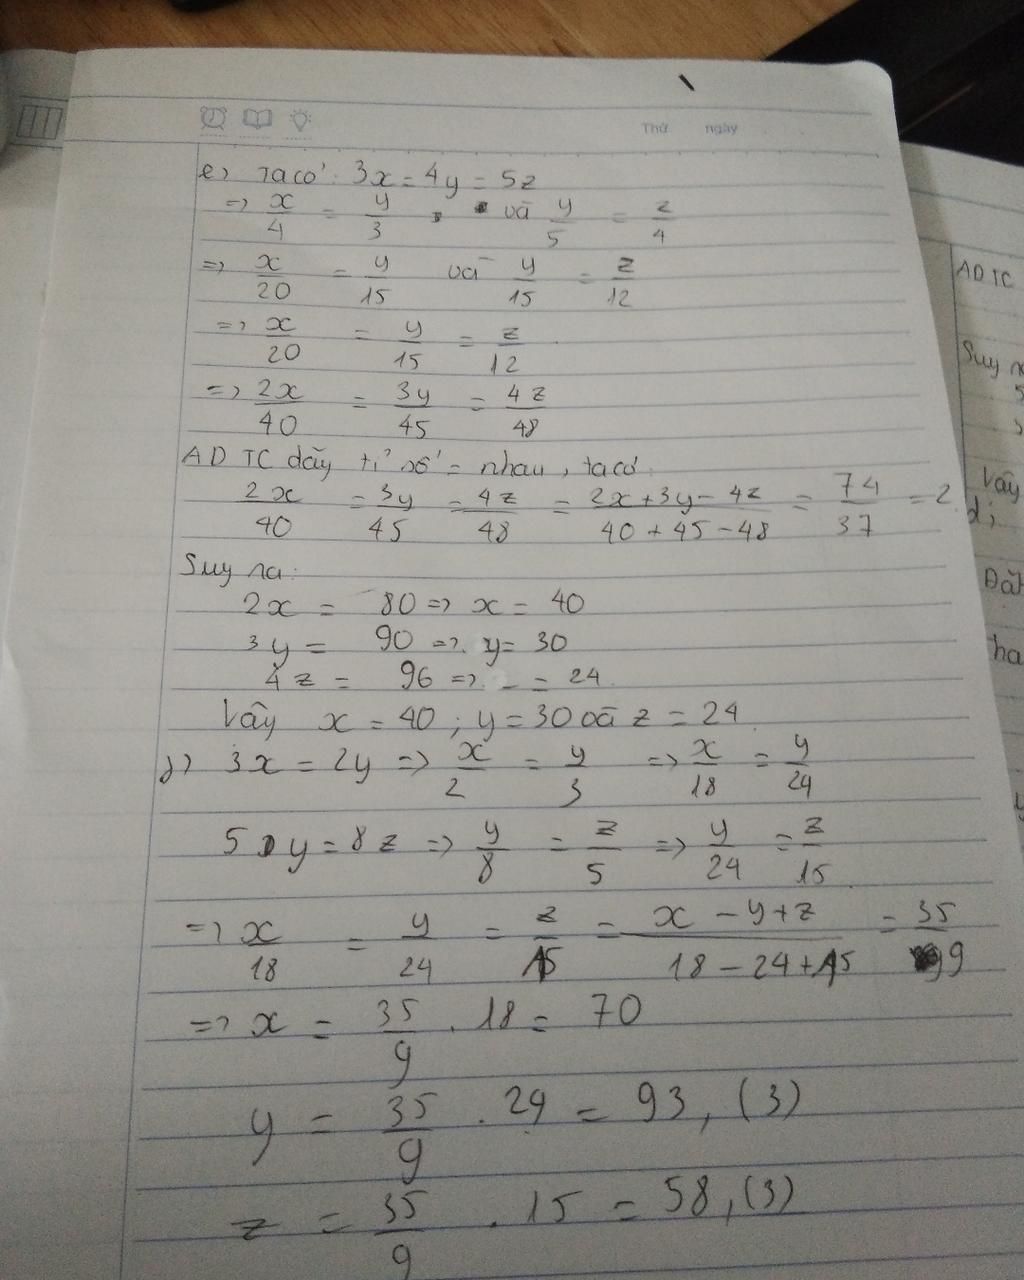 Thứ ngày
e, Ta có: 3x = 4y = 5z
=> x/4 = y/3 và y/5 = z/4
=> x/20 = y/15 và y/15 = z/12
=> x/20 = y/15 = z/12
=> 2x/40 = 3y/45 = 4z/48
ADTC dãy tỉ số = nhau, ta có:
2x/40 = 3y/45 = 4z/48 = 2x+3y-4z/40+45-48 = 74/37 = 2
Suy ra:
2x = 80 => x = 40
3y = 90 => y = 30
4z = 96 => = 24
Vậy x = 40 ; y = 30 và z = 24
3x = 2y => x/2 = y/3 => x/18 = y/24
5y = 8z => y/8 = z/5 => y/24 = z/15
=> x/18 = y/24 = z/15 = x-y+z/18-24+15 = 35/9
=> x = 35/9 . 18 = 70
y = 35/9 . 24 = 93,(3)
z = 35/9 . 15 = 58,(3)
ADTC
Suy
Vậy
d,
Đặt